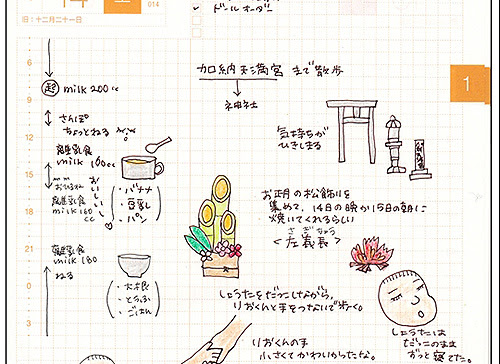 ドールオーダー
14
土
014
旧:十二月二十一日
1
6
起 milk 200cc
9
さんぽ
ちょっとねる
12
離乳食
milk 160cc
おいしい
15
・バナナ
・豆乳
・パン
おひるね
離乳食
milk 160
cc
18
21
離乳食
milk 180
ねる
・大根
・とうふ
・ごはん
0
3
加納天満宮 まで散歩
神社
気持ちが
ひきしまる
お正月の松飾りを
集めて、14日の晩か15日の朝に
焼いてくれるらしい
さぎちょう
<左義長>
しょうたをだっこしながら、
りおくんと手をつないで歩く。
りおくんの手
小さくてかわいかったな。
しょうたは
だっこのまま
ずっと寝てた。